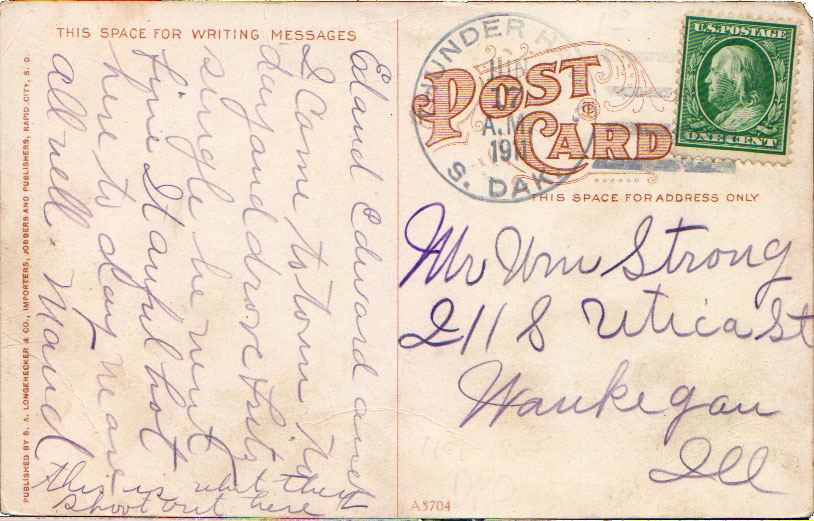 THIS SPACE FOR WRITING MESSAGES
Ed and Edward and
I Come to town to
day and drove Fritz
single he went
fine It awful hot
here to day
all well. Maud
this is what they
shoot out here
PUBLISHED BY S. A. LONGENECKER & CO., IMPORTERS, JOBBERS AND PUBLISHERS, RAPID CITY, S. D.
THUNDER H
JUN
A.M.
191
S. DAK
POST
CARD
U.S. POSTAGE
ONE CENT
THIS SPACE FOR ADDRESS ONLY
Mr Wm Strong
211 S Utica St
Waukegan
Ill
A5704